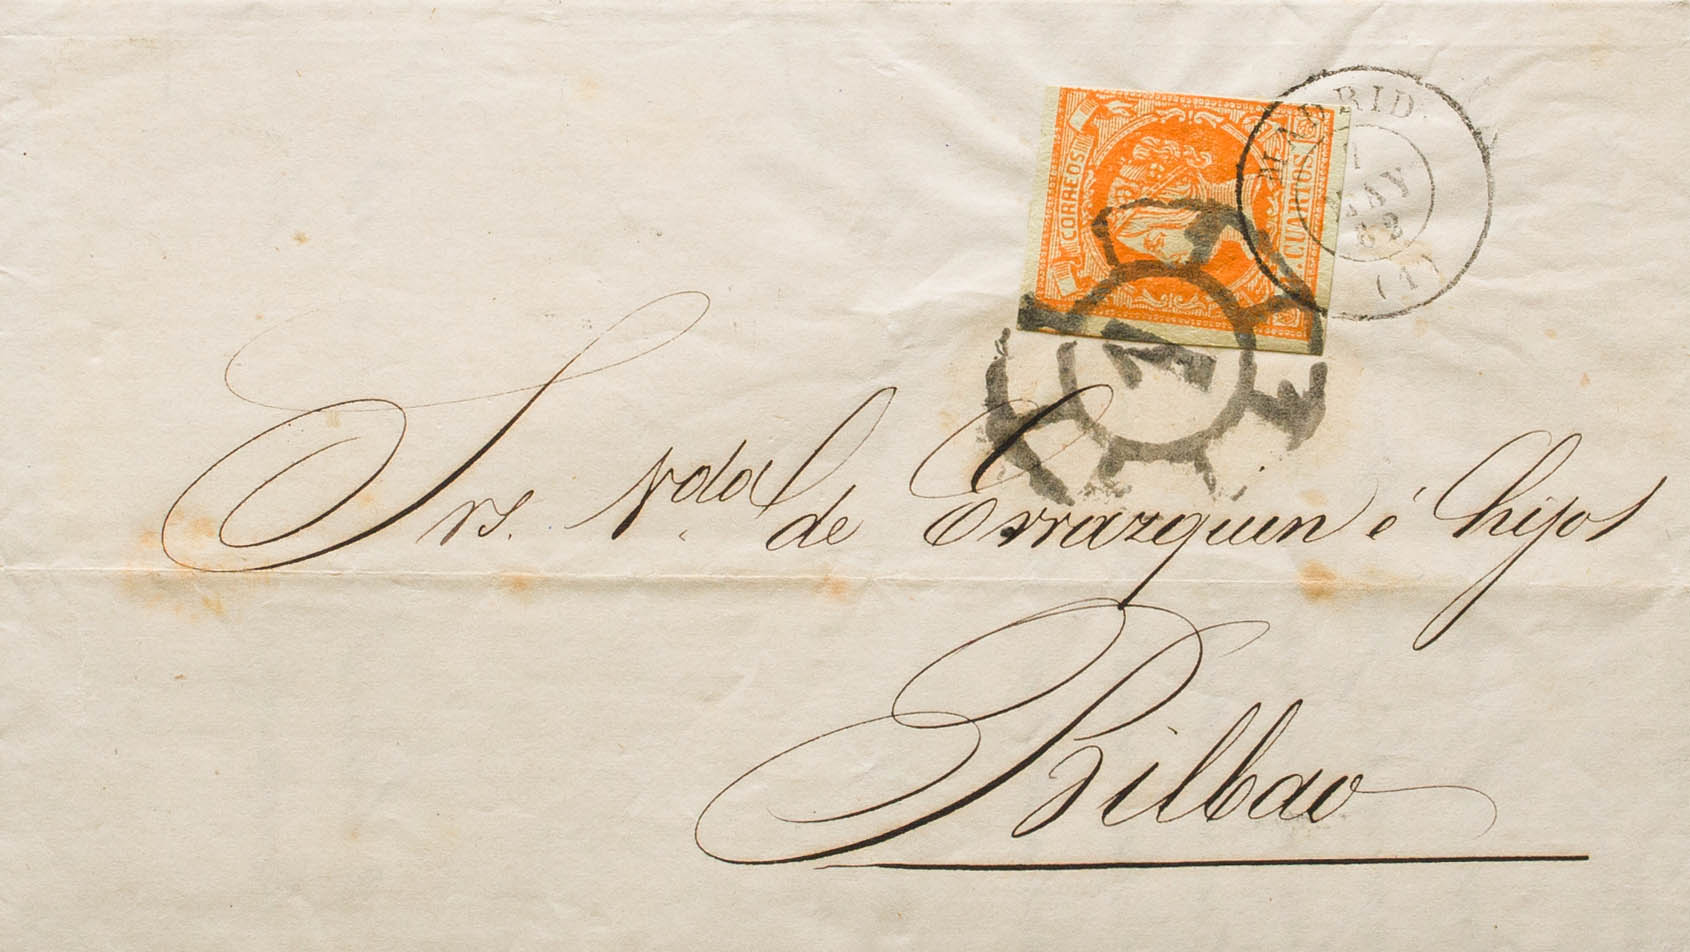 CORREOS
CUARTOS
MADRID
1
MAY
62
(1)
1
Srs. V.da de Errazquin é hijos
Bilbao